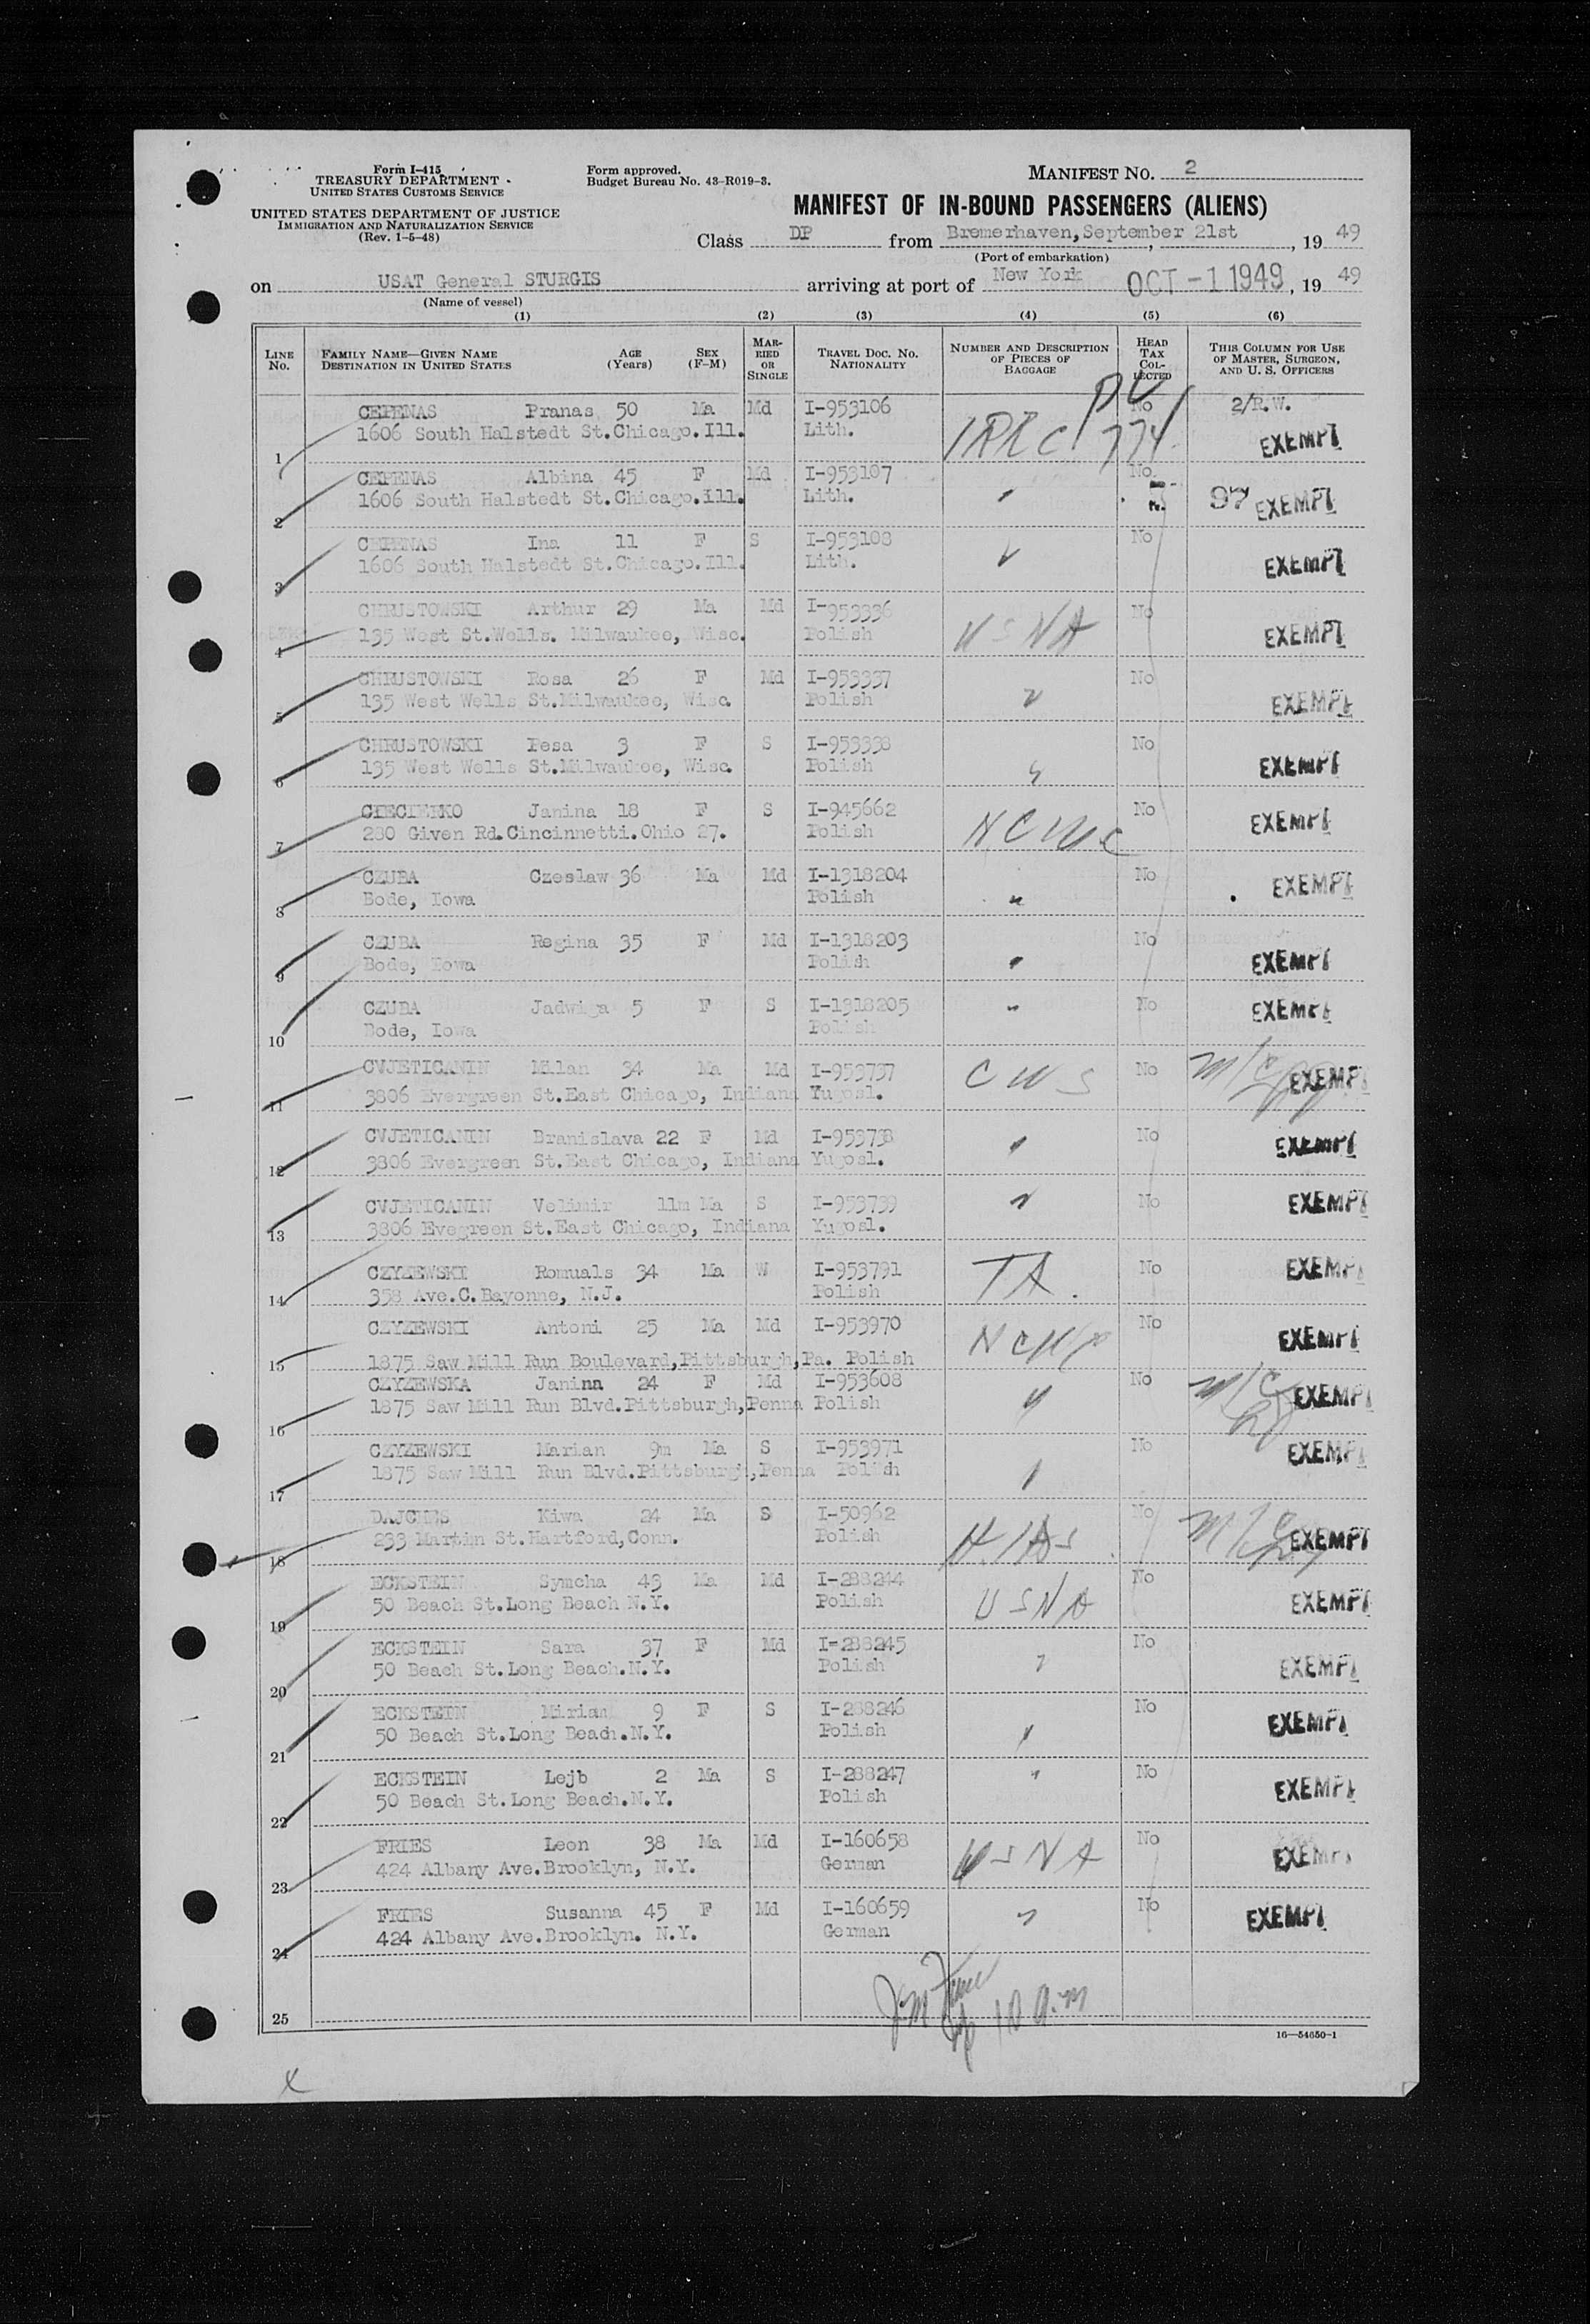 Form I-415
TREASURY DEPARTMENT
UNITED STATES CUSTOMS SERVICE
UNITED STATES DEPARTMENT OF JUSTICE
IMMIGRATION AND NATURALIZATION SERVICE
(Rev. 1-5-48)
Form approved.
Budget Bureau No. 43-R019-3.
MANIFEST No. 2
MANIFEST OF IN-BOUND PASSENGERS (ALIENS)
Class DP from Bremerhaven, September 21st, 19 49
(Port of embarkation)
on USAT General STURGIS arriving at port of New York OCT -1 1949, 19 49
(Name of vessel)
(1) (2) (3) (4) (5) (6)
LINE No. FAMILY NAME—GIVEN NAME DESTINATION IN UNITED STATES AGE (Years) SEX (F-M) MARRIED OR SINGLE TRAVEL DOC. No. NATIONALITY NUMBER AND DESCRIPTION OF PIECES OF BAGGAGE HEAD TAX COLLECTED THIS COLUMN FOR USE OF MASTER, SURGEON, AND U. S. OFFICERS
CEPENAS Pranas 50 Ma Md I-953106 No 2/R.W.
1 1606 South Halstedt St.Chicago.Ill. Lith. 774 EXEMPT
CEPENAS Albina 45 F Md I-953107 No
2 1606 South Halstedt St.Chicago.Ill. Lith. 97 EXEMPT
CEPENAS Ina 11 F S I-953108 No
3 1606 South Halstedt St.Chicago.Ill. Lith. EXEMPT
CHRUSTOWSKI Arthur 29 Ma Md I-953336 No
4 135 West St.Wells. Milwaukee, Wisc. Polish USNA EXEMPT
CHRUSTOWSKI Rosa 26 F Md I-953337 No
5 135 West Wells St.Milwaukee, Wisc. Polish EXEMPT
CHRUSTOWSKI Pesa 3 F S I-953338 No
6 135 West Wells St.Milwaukee, Wisc. Polish EXEMPT
CIECIERKO Janina 18 F S I-945662 No
7 280 Given Rd.Cincinnetti.Ohio 27. Polish NCWC EXEMPT
CZUBA Czeslaw 36 Ma Md I-1318204 No
8 Bode, Iowa Polish EXEMPT
CZUBA Regina 35 F Md I-1318203 No
9 Bode, Iowa Polish EXEMPT
CZUBA Jadwiga 5 F S I-1318205 No
10 Bode, Iowa Polish EXEMPT
CVJETICANIN Milan 34 Ma Md I-953737 CWS No
11 3806 Evergreen St.East Chicago, Indiana Yugosl. EXEMPT
CVJETICANIN Branislava 22 F Md I-953738 No
12 3806 Evergreen St.East Chicago, Indiana Yugosl. EXEMPT
CVJETICANIN Velimir 11m Ma S I-953739 No
13 3806 Evegreen St.East Chicago, Indiana Yugosl. EXEMPT
CZYZEWSKI Romuals 34 Ma W I-953791 TA. No
14 358 Ave.C.Bayonne, N.J. Polish EXEMPT
CZYZEWSKI Antoni 25 Ma Md I-953970 No
15 1875 Saw Mill Run Boulevard,Pittsburgh,Pa. Polish EXEMPT
CZYZEWSKA Janina 24 F Md I-953608 No
16 1875 Saw Mill Run Blvd.Pittsburgh,Penna Polish EXEMPT
CZYZEWSKI Marian 9m Ma S I-953971 No
17 1875 Saw Mill Run Blvd.Pittsburgh,Penna Polish EXEMPT
DAJCHES Kiwa 24 Ma S I-50962 No
18 233 Martin St.Hartford,Conn. Polish HIAS EXEMPT
ECKSTEIN Symcha 43 Ma Md I-288244 No
19 50 Beach St.Long Beach N.Y. Polish USNA EXEMPT
ECKSTEIN Sara 37 F Md I-288245 No
20 50 Beach St.Long Beach.N.Y. Polish EXEMPT
ECKSTEIN Miriam 9 F S I-288246 No
21 50 Beach St.Long Beach.N.Y. Polish EXEMPT
ECKSTEIN Lejb 2 Ma S I-288247 No
22 50 Beach St.Long Beach.N.Y. Polish EXEMPT
FRIES Leon 38 Ma Md I-160658 No
23 424 Albany Ave.Brooklyn, N.Y. German USNA EXEMPT
FRIES Susanna 45 F Md I-160659 No
24 424 Albany Ave.Brooklyn. N.Y. German EXEMPT
25
10 a.m
16—54650-1